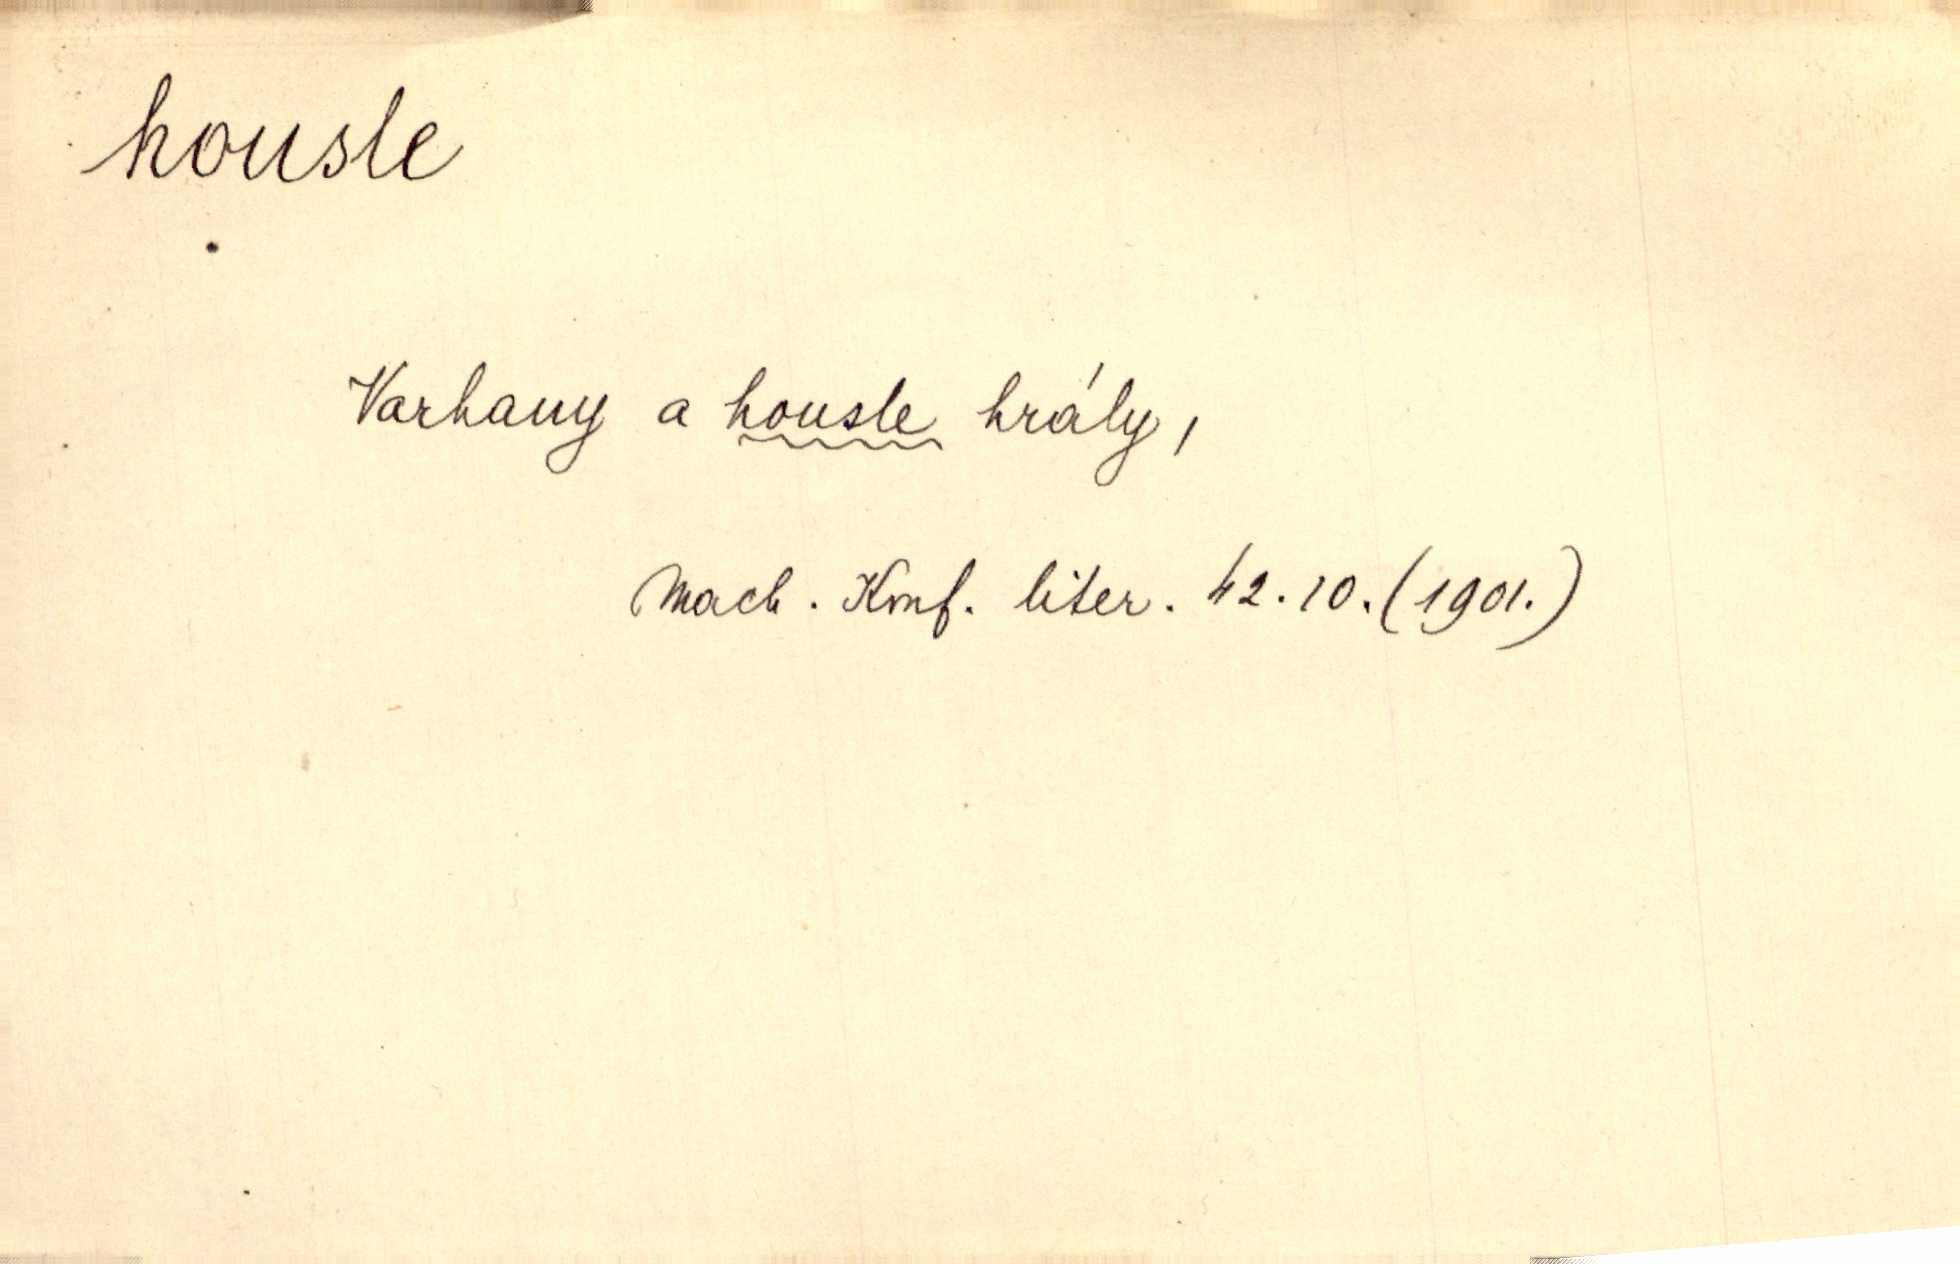 housle
Varhany a housle hrály,
Mach. Konf. liter. 42.10.(1901.)